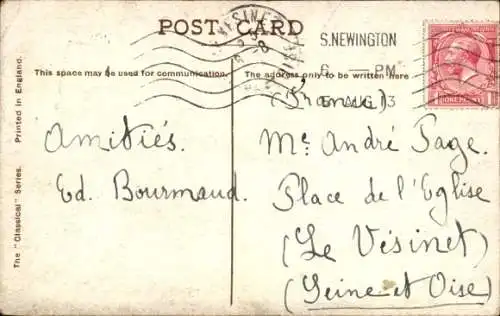 POST CARD
This space may be used for communication.
The address only to be written here
S.NEWINGTON
6 — PM
5 AUG 13
(France)
Amitiés.
Ed. Bourmaud.
Mr André Page.
Place de l'Eglise
(Le Vésinet)
(Seine et Oise)
The "Classical" Series.
Printed in England.
ONE PENNY